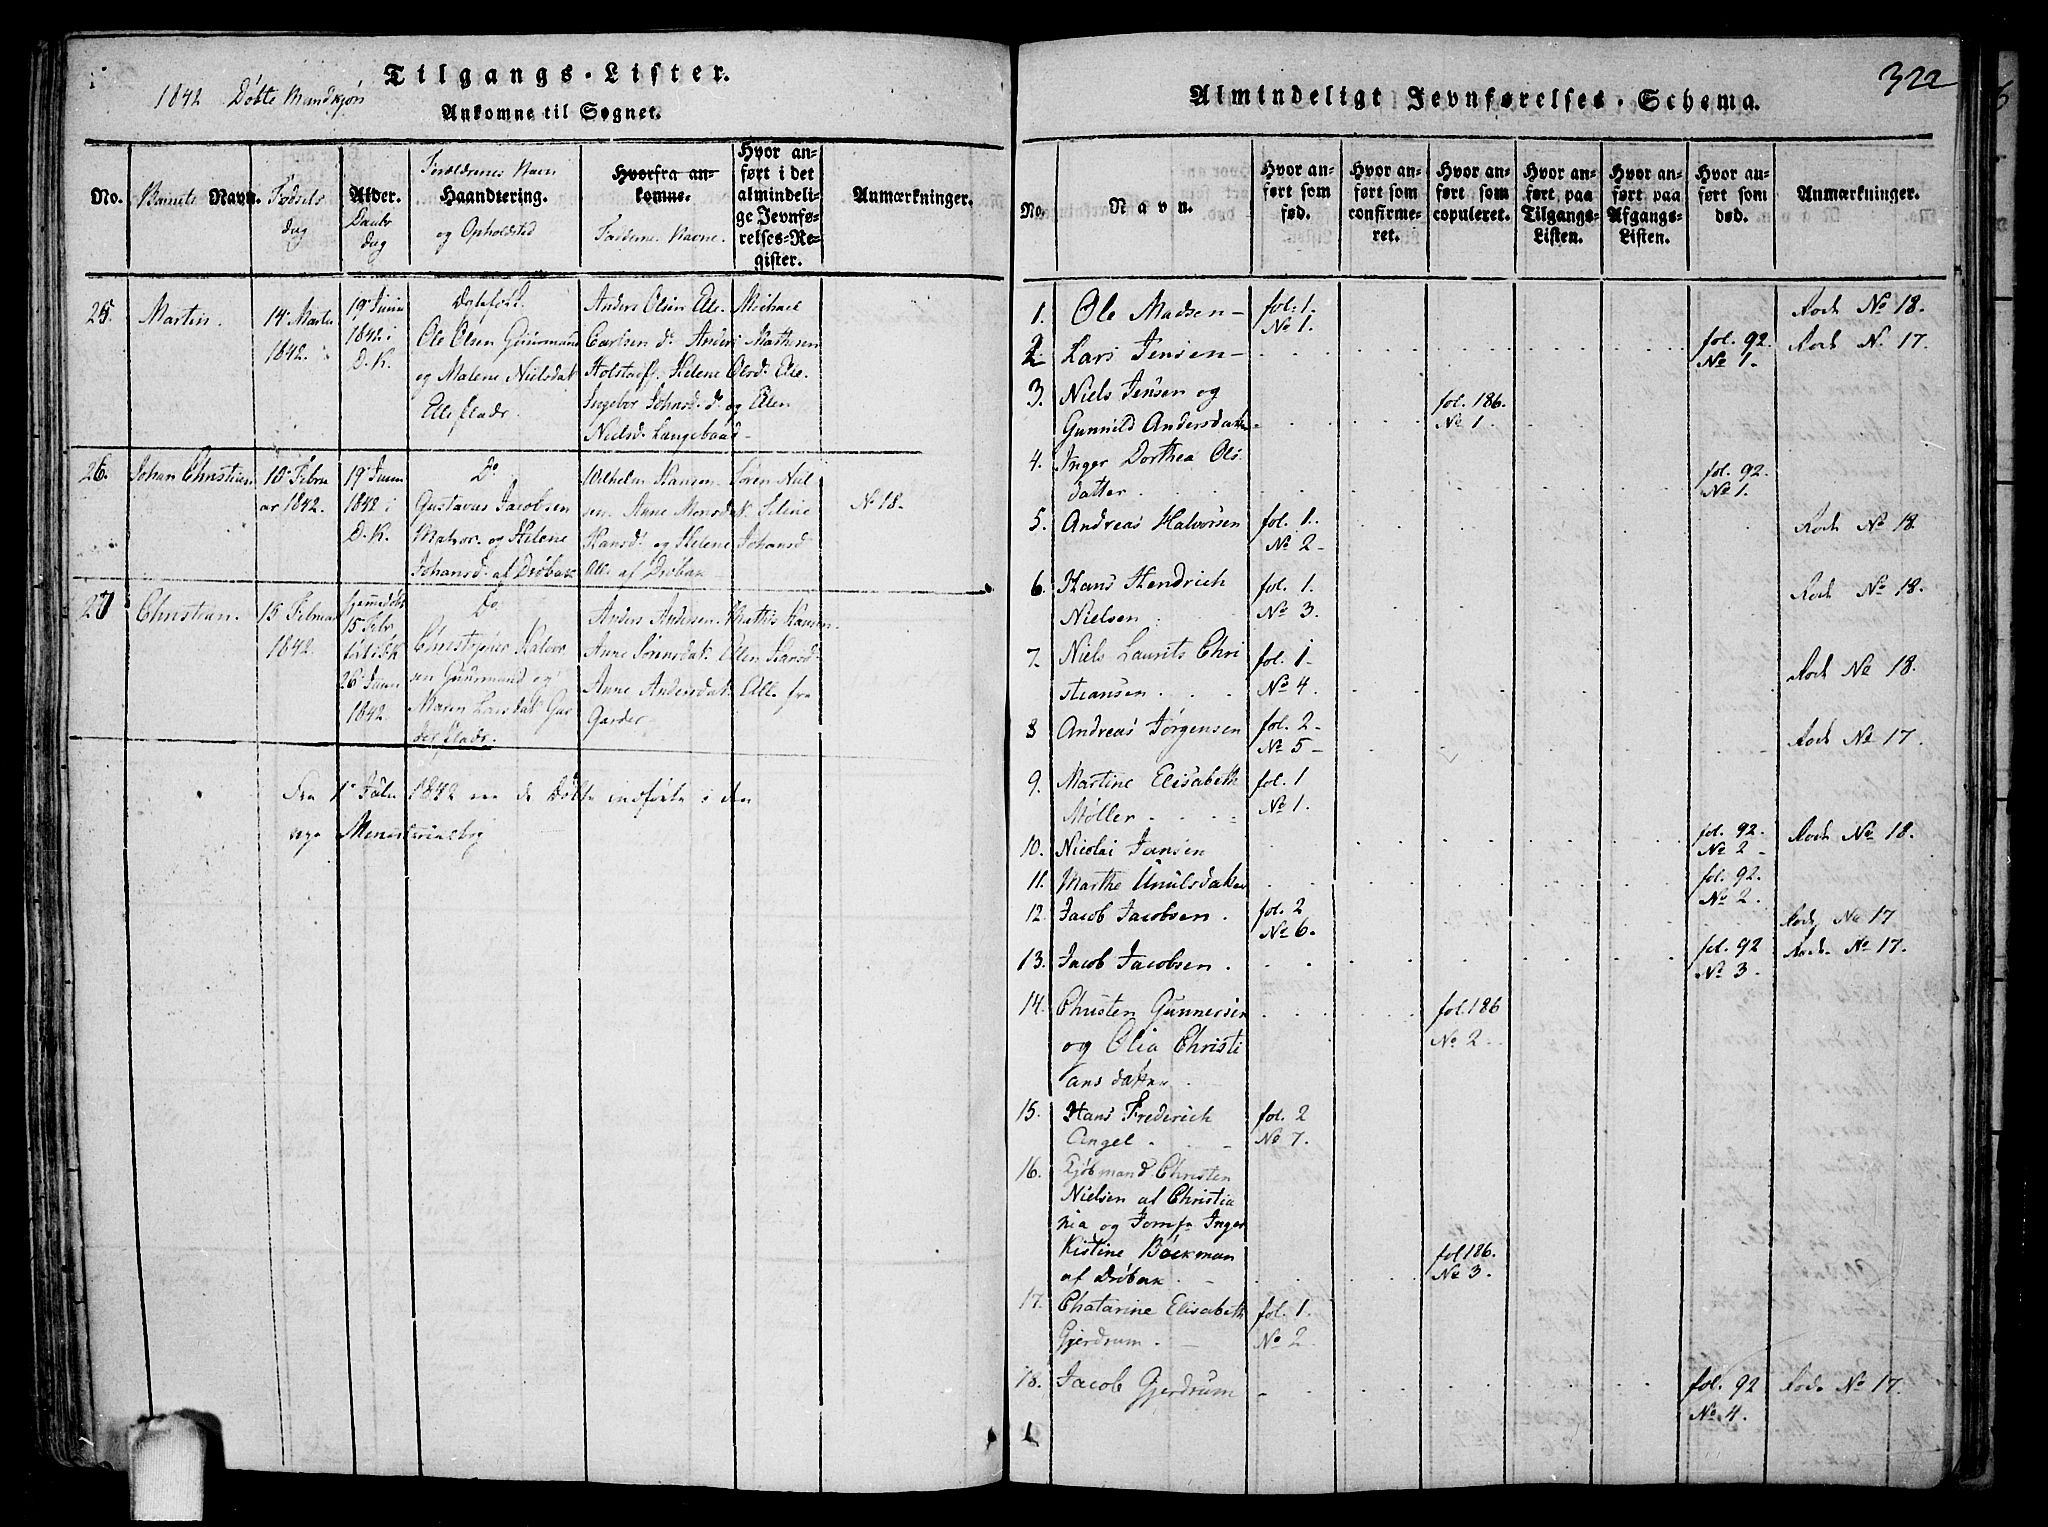 1842 Døbte Mandkjøn
Tilgangs-Lister.
Ankomne til Sognet.
No.
Barnets Navn.
Fødsels
dag
Alder.
Daabs
dag
Forældrenes Navn
Haandtering.
og Opholdsted
Hvorfra an-
komne.
Faddernes Navne.
Hvor an-
ført i det
almindeli-
ge Jevnfø-
relses-Re-
gister.
Anmærkninger.
25. Martin.
14 Martii
1842.
19 Juni
1842 i
D. K.
Ole Olsen Guurmand
og Malene Nielsdat.
Elle Eladr.
Anders Olsen Elle. Michael
Carlsen do. Anders Mathesen
Holstad. Helene Olsd. Elle.
Ingebor Johnsd. do og Ellen
Nielsd. Langebaad
26. Johan Christian
10 Febru
ar 1842.
19 Juni
1842 i
D. K.
Do
Gustavus Jacobsen
Matros. og Helene
Johansd. af Drøbak
Wilhelm Hansen. Søren Niel
sen. Anne Monsdat. Eline
Hansd. og Helene Johansd.
Alle af Drøbak
No 18.
27 Christian.
15 Februar
1842.
hjemmedøbt
15 Febr
26 Juni
1842
Do
Christopher Halvor
sen Guurmand og
Maren Larsdat. Gar
der Eladr.
Anders Andersen. Mathis Hansen.
Anne Sørensdat. Ellen Hansd.
Anne Andersdat. Elle fra
Garder
Fra 1 Juli 1842 ere de Døbte indførte i den
nye Ministerialbog
322
Almindeligt Jevnførelses-Schema.
No.
Navn.
Hvor an-
ført som
fød.
Hvor an-
ført som
confirme-
ret.
Hvor an-
ført som
copuleret.
Hvor an-
ført paa
Tilgangs-
Listen.
Hvor an-
ført paa
Afgangs-
Listen.
Hvor an-
ført som
død.
Anmærkninger.
1. Ole Madsen fol. 1. No 1. Rode No 18.
2. Lars Jensen fol. 92. No 1. Rode N. 17.
3. Niels Jensen og
Gunnild Andersdatter fol. 186. No 1.
4. Inger Dorthea Ols
datter fol. 92. No 1.
5. Andreas Halvorsen fol. 1. No 2 Rode No 18
6. Hans Hendrich
Nielsen fol. 1. No 3. Rode No 18.
7. Niels Laurits Chri
stiansen fol. 1. No 4. Rode No 18.
8 Andreas Jørgensen fol. 2 No 5 Rode No 17.
9. Martine Elisabeth
Møller fol. 1 No 1.
10. Nicolai Jansen fol. 92. No 2 Rode No 18.
11. Marthe fol. 92. No 2.
12. Jacob Jacobsen. fol. 2 No 6. Rode No 17
13. Jacob Jacobsen. fol. 92 No 3. Rode No 17.
14. Christen Gunnersen
og Olia Christi
ansdatter fol. 186 No 2
15. Hans Frederich
Angel fol. 2 No 7.
16. Kjøbmand Christen
Nielsen af Christia
nia og Jomfr Inger
Kistine Böckman
af Drøbak fol 186. No 3.
17. Chatarine Elisabeth
Gjerdrum fol. 1. No 2
18. Jacob Gjerdrum fol. 92 No 4. Rode No 17.